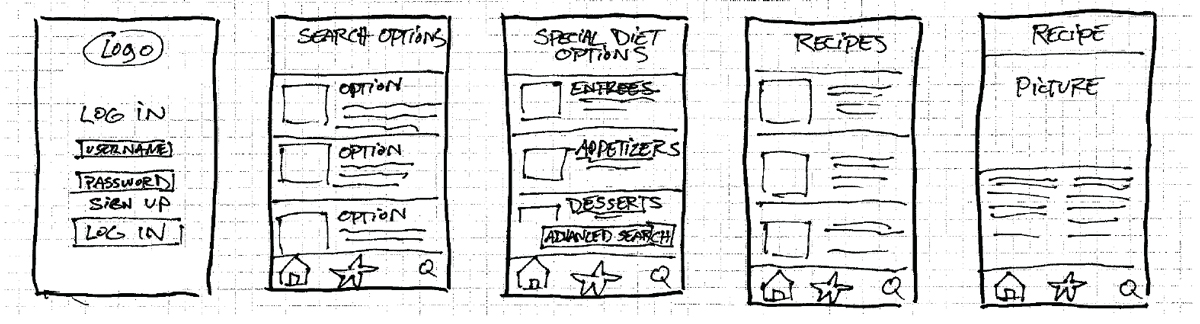 Logo
LOG IN
USERNAME
PASSWORD
SIGN UP
LOG IN
SEARCH OPTIONS
OPTION
OPTION
OPTION
SPECIAL DIET
OPTIONS
ENTREES
APPETIZERS
DESSERTS
ADVANCED SEARCH
RECIPES
RECIPE
PICTURE